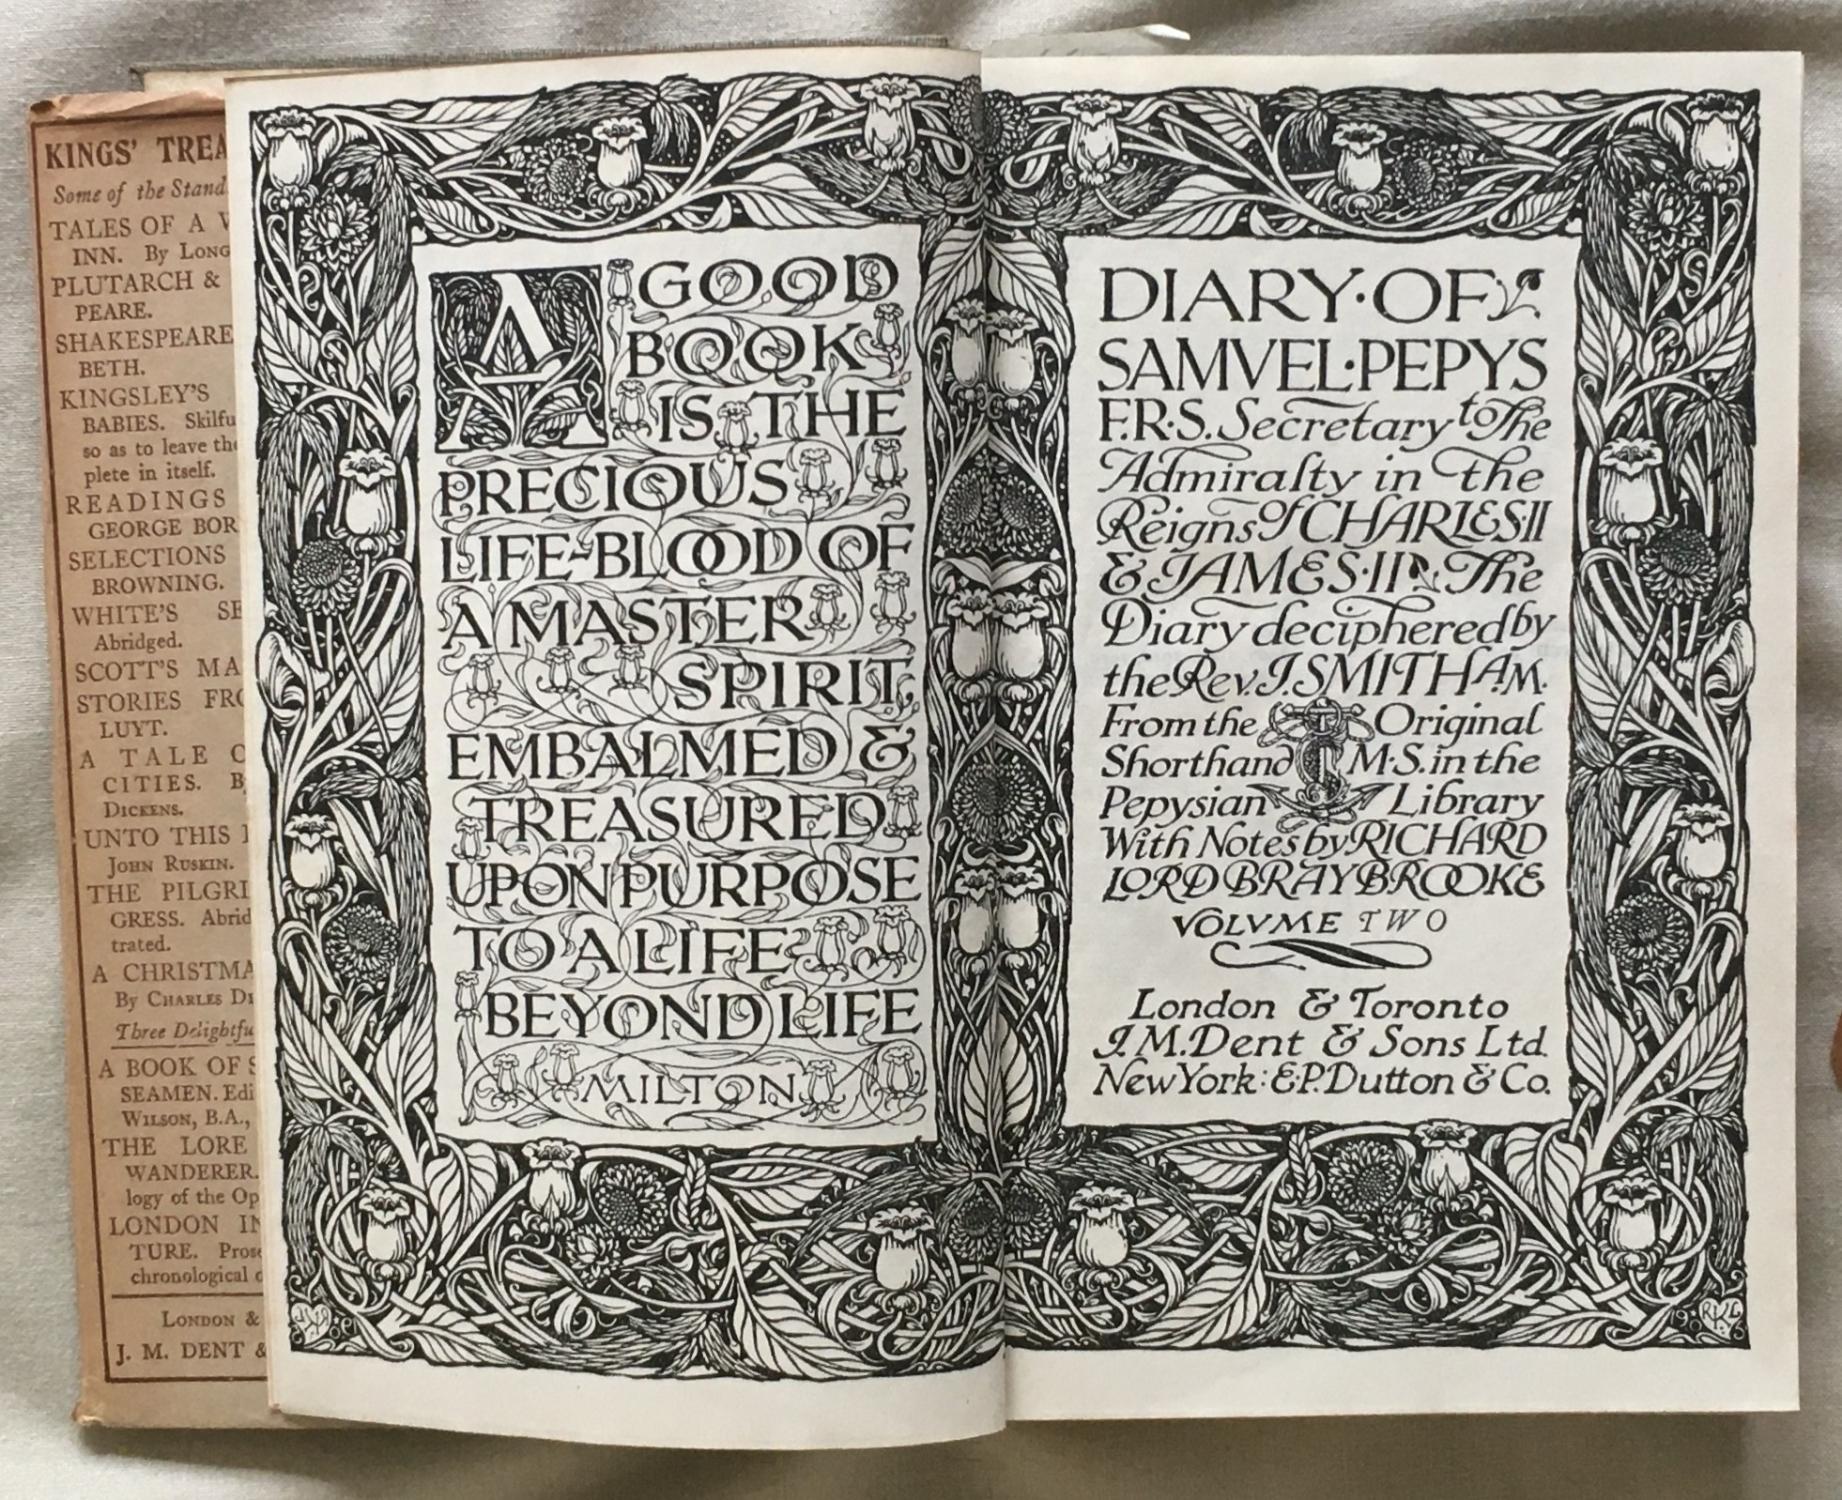 KINGS' TREA
Some of the Stand
TALES OF A W
INN. By Long
PLUTARCH &
PEARE.
SHAKESPEARE
BETH.
KINGSLEY'S
BABIES. Skilfu
so as to leave the
plete in itself.
READINGS
GEORGE BOR
SELECTIONS
BROWNING.
WHITE'S SE
Abridged.
SCOTT'S MA
STORIES FRO
LUYT.
A TALE O
CITIES. B
Dickens.
UNTO THIS L
John Ruskin.
THE PILGRI
GRESS. Abrid
trated.
A CHRISTMA
By Charles Di
Three Delightfu
A BOOK OF S
SEAMEN. Edi
Wilson, B.A.,
THE LORE
WANDERER.
logy of the Op
LONDON IN
TURE. Prose
chronological o
London &
J. M. DENT &
A GOOD
BOOK
IS THE
PRECIOUS
LIFE-BLOOD OF
A MASTER
SPIRIT,
EMBALMED &
TREASURED
UPON PURPOSE
TO A LIFE
BEYOND LIFE
MILTON
DIARY·OF
SAMVEL·PEPYS
F.R.S. Secretary to The
Admiralty in the
Reigns of CHARLES·II
& JAMES·II The
Diary deciphered by
the Rev. J. SMITH A.M.
From the Original
Shorthand M·S. in the
Pepysian Library
With Notes by RICHARD
LORD BRAYBROOKE
VOLVME TWO
London & Toronto
J. M. Dent & Sons Ltd.
New York: E.P. Dutton & Co.